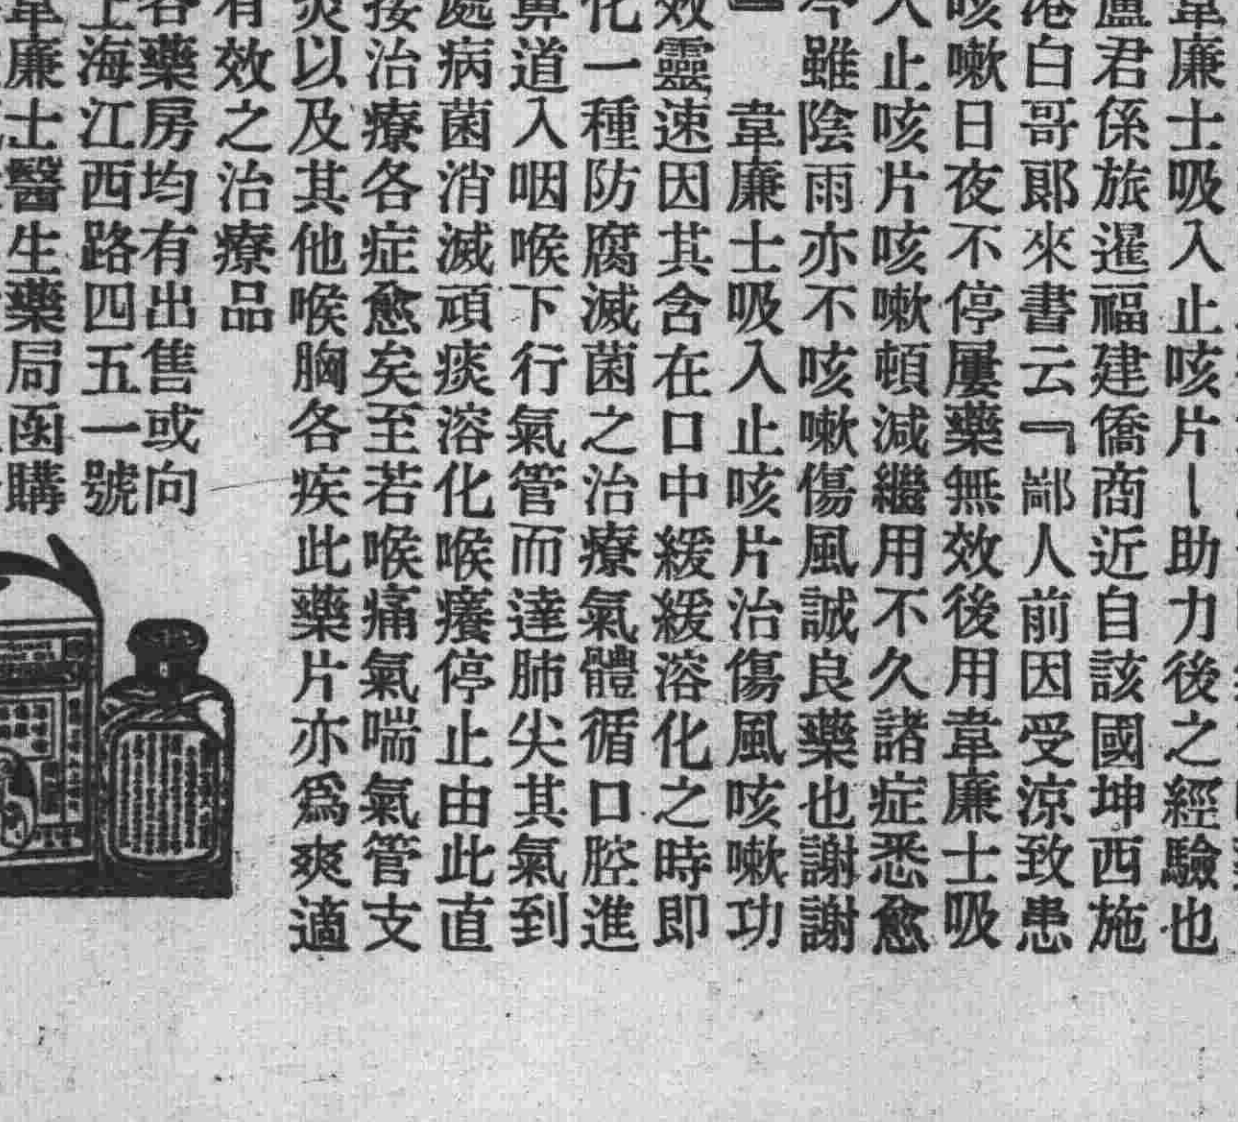 韋廉士吸入止咳片—助力後之經驗也
盧君係旅暹福建僑商近自該國坤西施
港白哥郞來書云『鄙人前因受涼致患
咳嗽日夜不停屢藥無效後用韋廉士吸
入止咳片咳嗽頓減繼用不久諸症悉愈
今雖陰雨亦不咳嗽傷風誠良藥也謝謝
』韋廉士吸入止咳片治傷風咳嗽功
效靈速因其含在口中緩緩溶化之時即
化一種防腐滅菌之治療氣體循口腔進
鼻道入咽喉下行氣管而達肺尖其氣到
處病菌消滅頑痰溶化喉癢停止由此直
接治療各症愈矣至若喉痛氣喘氣管支
炎以及其他喉胸各疾此藥片亦爲爽適
有效之治療品
各藥房均有出售或向
上海江西路四五一號
韋廉士醫生藥局函購